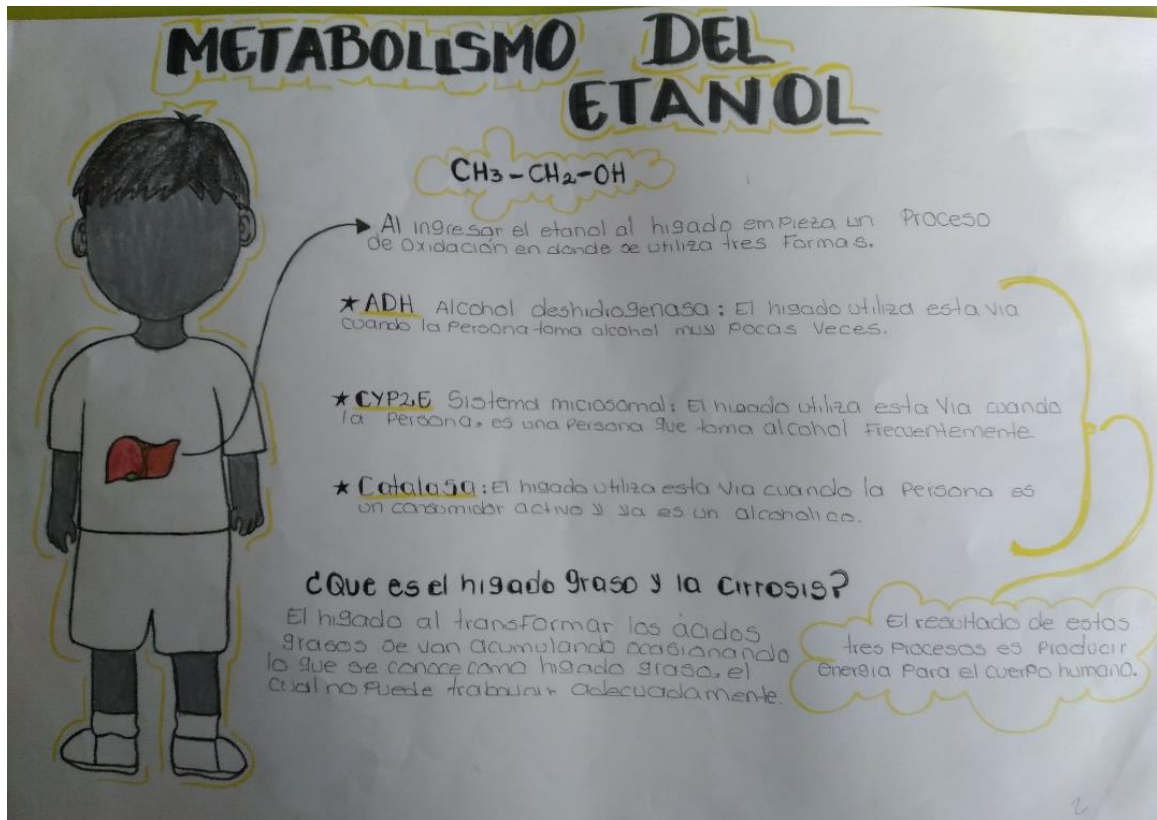 METABOLISMO DEL
ETANOL
CH3-CH2-OH
Al ingresar el etanol al higado empieza un Proceso
de oxidación en donde se utiliza tres Formas.
★ ADH Alcohol deshidrogenasa: El higado utiliza esta via
cuando la Persona toma alcohol muy Pocas Veces.
★ CYP2E Sistema microsomal: El higado utiliza esta Via cuando
la Persona, es una Persona que toma alcohol Frecuentemente
★ Catalasa: El higado utiliza esta via cuando la Persona es
un consumidor activo y ya es un alcoholico.
¿Que es el higado graso y la cirrosis?
El higado al transFormar los ácidos
grasos se van acumulando ocasionando
lo que se conoce como higado graso, el
cual no Puede trabajar adecuadamente.
El resultado de estos
tres Procesos es Producir
energia Para el cuerpo humano.
2